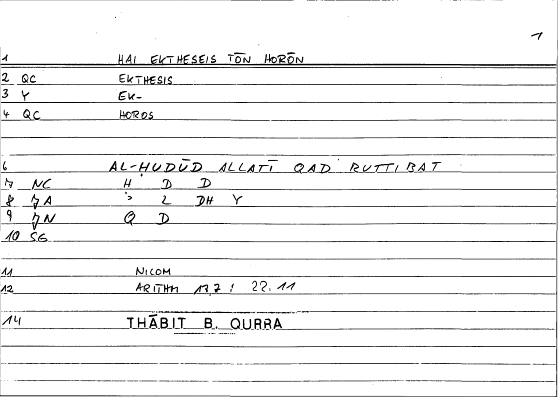 1
1 HAI EKTHESEIS TŌN HORŌN
2 QC EKTHESIS
3 Y EK-
4 QC HOROS
6 AL-ḤUDŪD ALLATĪ QAD RUTTIBAT
7 NC Ḥ D D
8 JA ʾ L DH Y
9 JN Q D
10 SG
11 NICOM
12 ARITHM 13,7 : 22.11
14 THĀBIT B. QURRA